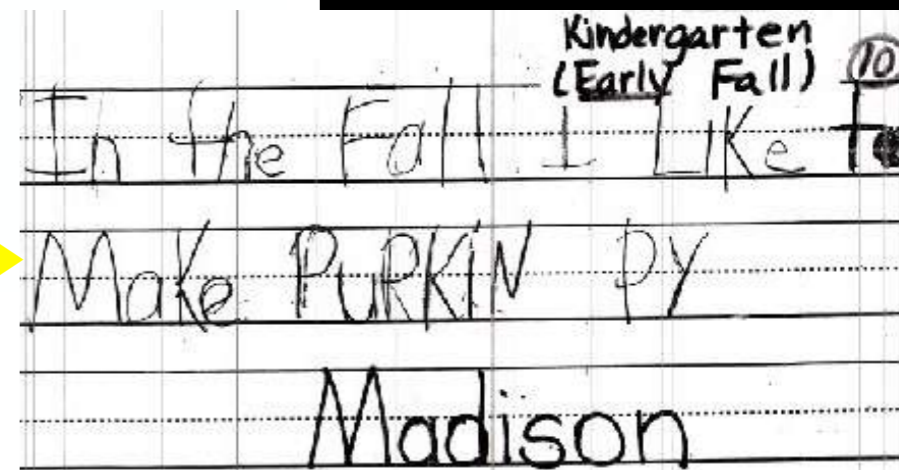 Kindergarten
(Early Fall)
10
In the Fall I LIKe to
Make PURKiN PY
Madison